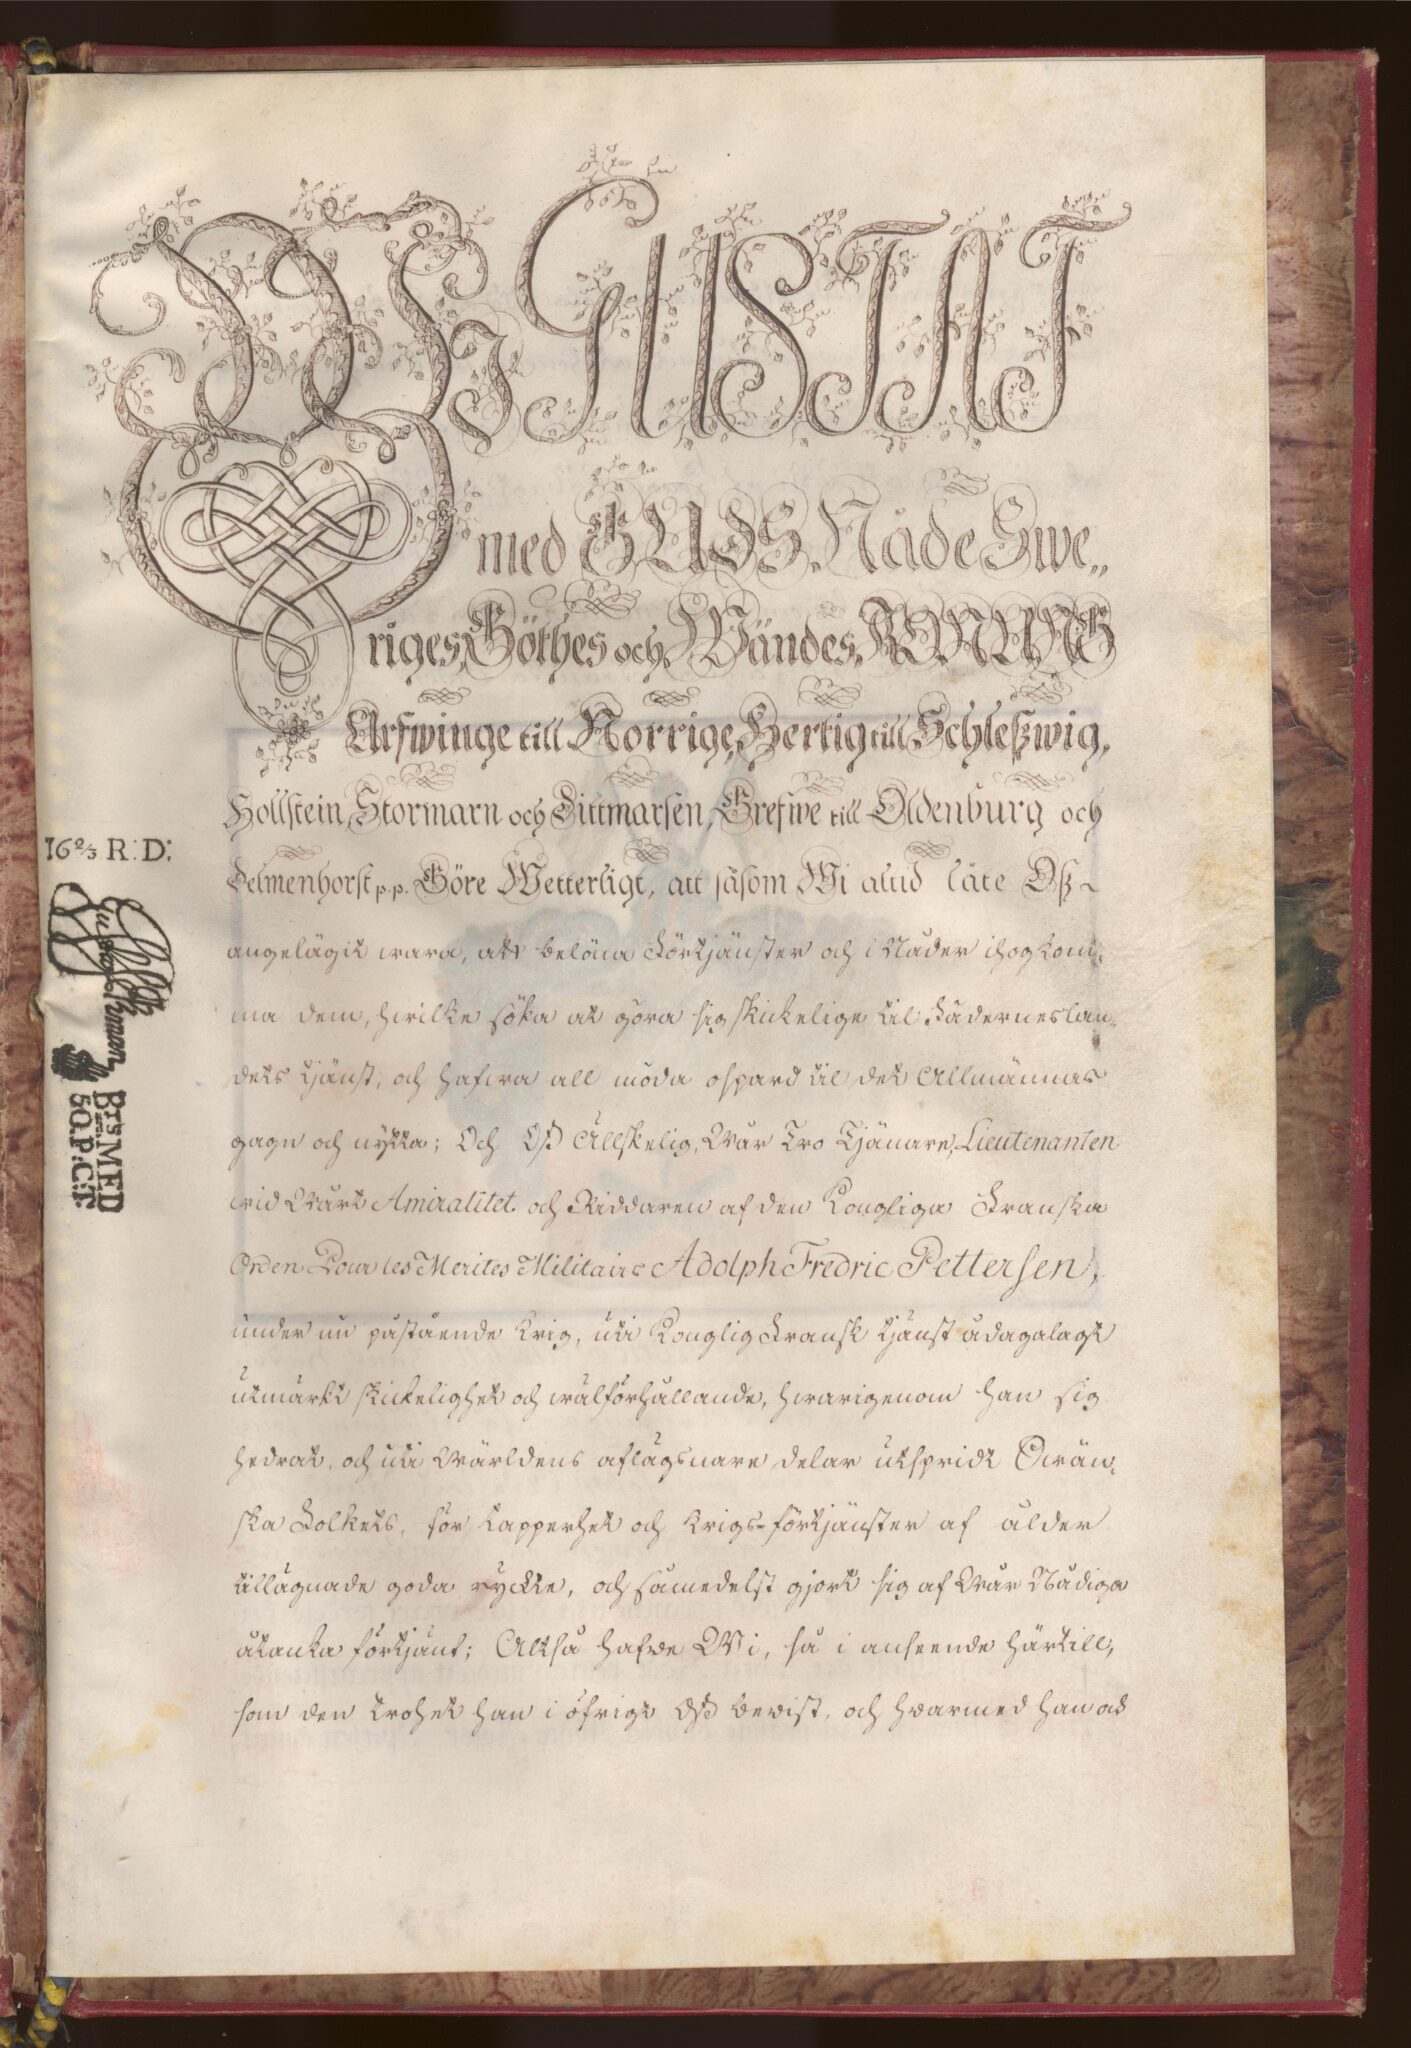 Wi GUSTAF
med GUDS Nåde Swe„
riges, Göthes och Wändes, KONUNG
Arfwinge till Norrige, Hertig till Schleßwig,
Hollstein, Stormarn och Dittmarsen, Grefwe till Oldenburg och
Delmenhorst p.p. Göre Wetterligt, att såsom Wi altid låte Oß
16 2/3 R: D:
angelägit wara, att belöna Förtjänster och i Nåder ihogkom„
ma dem, hwilke söka at göra sig skickelige til Fäderneslan„
dets tjänst, och hafwa all möda ospard til det Allmännas
gagn och nytta; Och Oß Älskelig, Wår Tro Tjänare, Lieutenanten
wid Wårt Amiralitet och Riddaren af den Kongliga Franska
Orden Pour les Merites Militaire Adolph Fredric Pettersen,
under nu påstående Krig, uti Konglig Fransk tjänst ådagalagt
utmärkt skickelighet och wälförhållande, hwarigenom han sig
hedrat, och uti Wärldens aflägsnare delar utspridt Swän„
ska Folkets, för tapperhet och Krigs-förtjänster af ålder
tillägnade goda ryckte, och såmedelst gjort sig af Wår Nådiga
åtanka förtjänt; Altså hafwe Wi, så i anseende härtill,
som den trohet han i öfrigt Oß bewist, och hwarmed han as
BTS MED
50. P: CT: